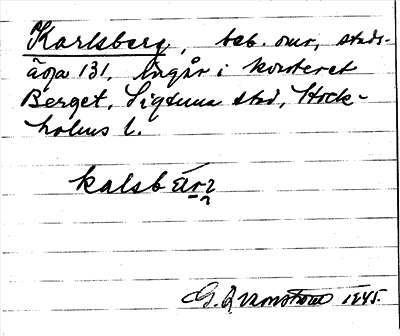 Karlsberg, beb. omr, stads-
äga 131. Ingår i kvarteret
Berget, Sigtuna stad, Stock-
holms l.
kalsbær2
G. 1945.